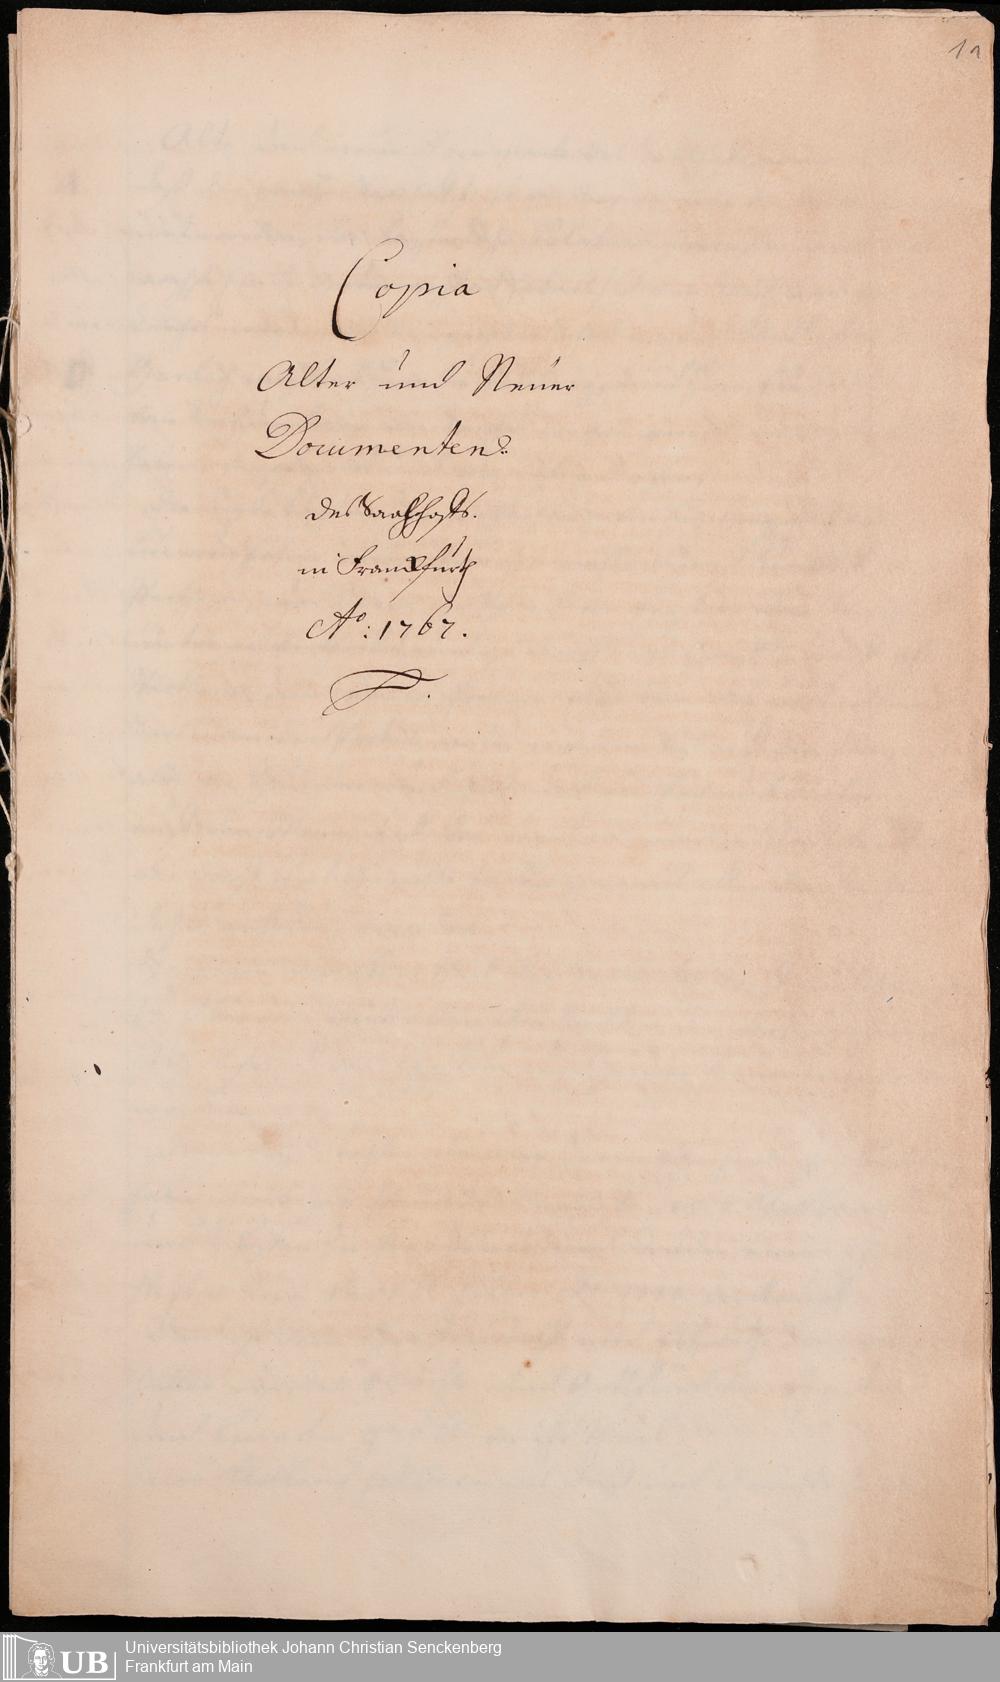 1a
Copia
Alter und Neuer
Documenten
des Saalhoffs.
in Franckfurth
Ao: 1767.
Universitätsbibliothek Johann Christian Senckenberg
Frankfurt am Main
UB